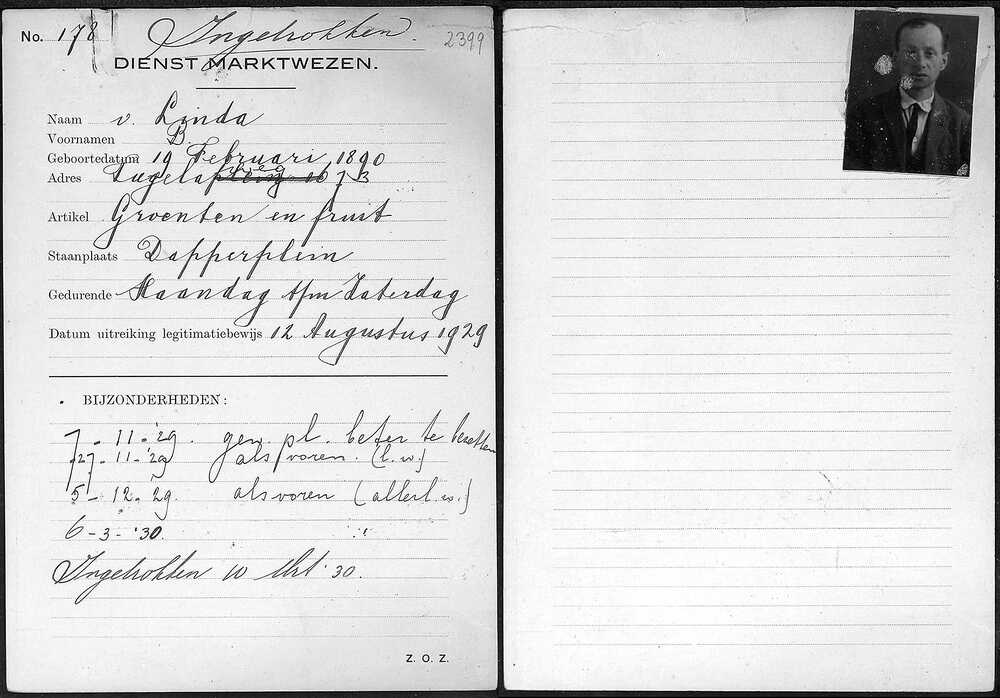 No. 178 Ingetrokken. 2399
DIENST MARKTWEZEN.
Naam v. Linda
Voornamen B.
Geboortedatum 19 Februari 1890
Adres 73
Artikel Groenten en fruit
Staanplaats Dapperplein
Gedurende Maandag t/m Zaterdag
Datum uitreiking legitimatiebewijs 12 Augustus 1929
BIJZONDERHEDEN:
7-11-'29. gew. pl. beter te bezetten
27-11-'29 als voren. (l.w.)
5-12-29. als voren (allerl.w.)
6-3-'30. "
Ingetrokken 10 Mrt '30.
Z. O. Z.